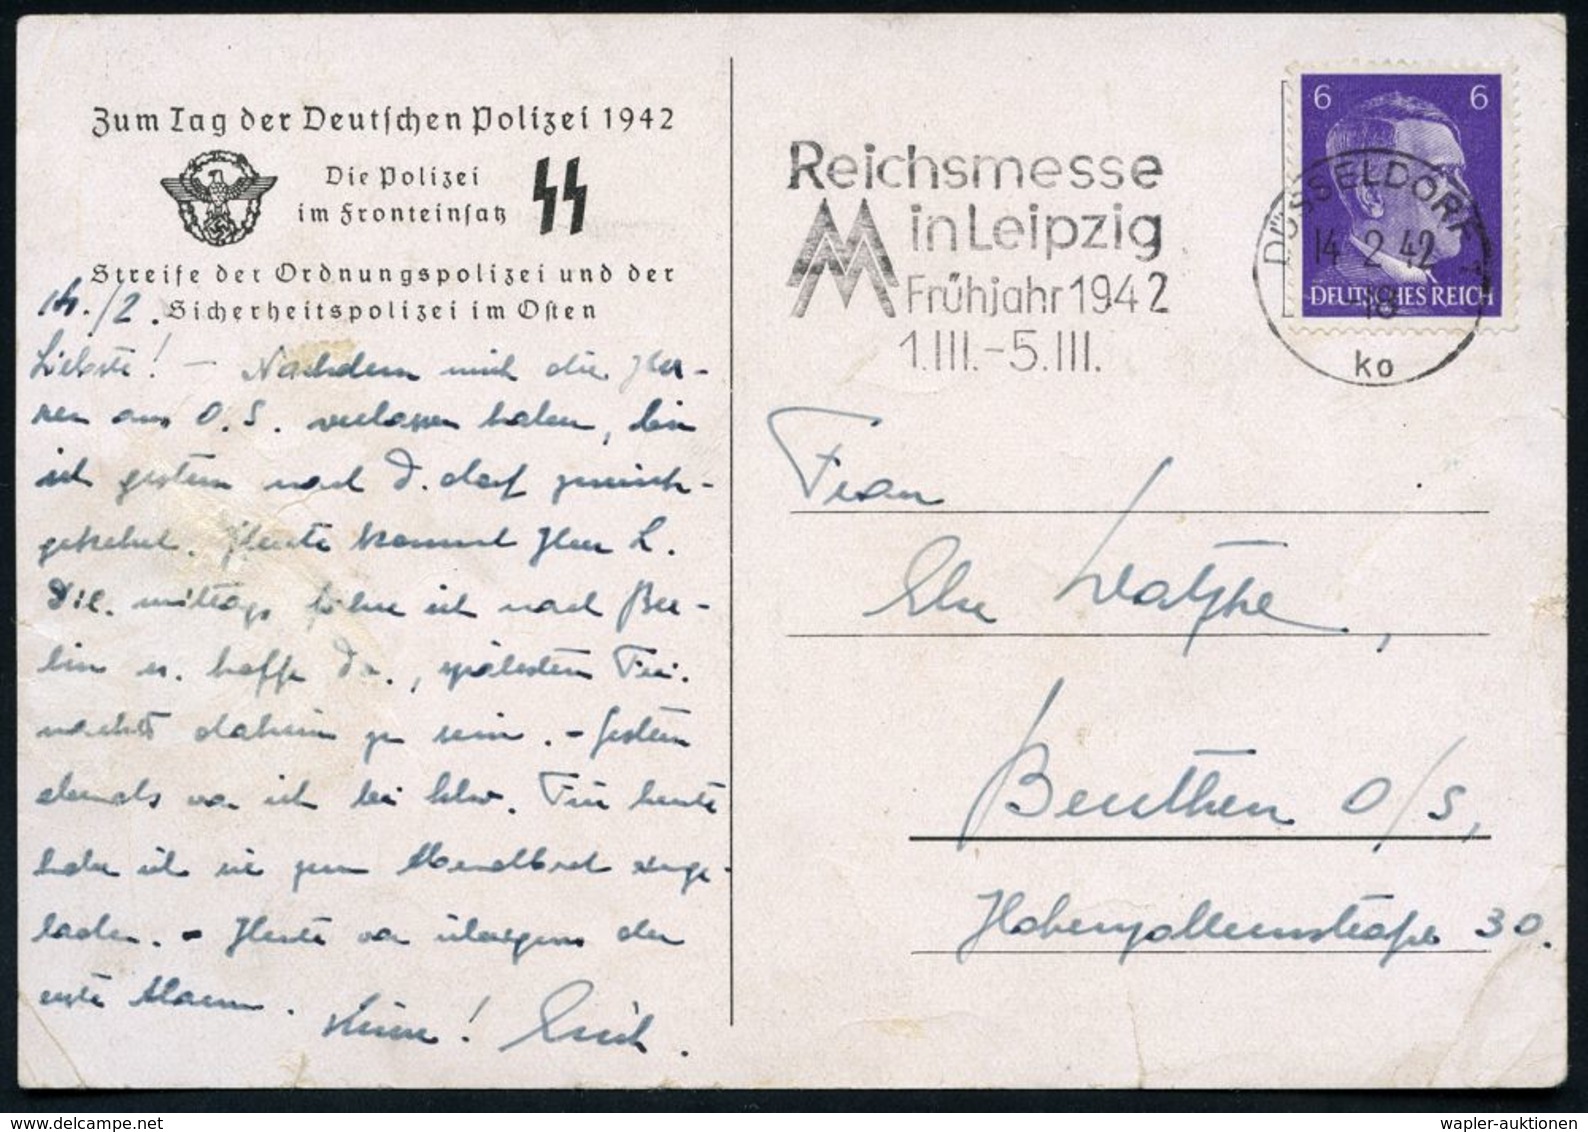 Zum Tag der Deutschen Polizei 1942
Die Polizei
im Fronteinsatz
Streife der Ordnungspolizei und der
Sicherheitspolizei im Osten
14./2.
Liebste! – Nachdem mich die Her-
ren aus O.S. verlassen haben, bin
ich gestern nach D.dorf zurück-
gekehrt. Heute kommt Herr L.
mittags fahre ich nach Ber-
lin u. hoffe Do., spätestens
nachts daheim zu sein. – Gestern
abends war ich bei Für heute
habe ich sie zum Abendbrot einge-
laden. – Heute war übrigens der
erste
Erich.
Reichsmesse
in Leipzig
Frühjahr 1942
1.III.-5.III.
6 6
DEUTSCHES REICH
DÜSSELDORF 1
14.2.42-18
ko
Frau
Else Watzke,
Beuthen O/S,
Hohenzollernstraße 30.
wapler-auktionen